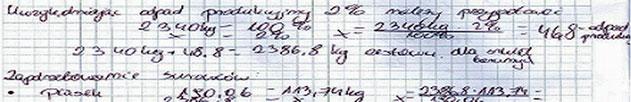 Uwzględniając odpad produkcyjny 2% należy przygotować
2340kg = 100%
x = 2% x = 2340kg · 2% / 100% = 46,8 - odpad produkc
2340kg + 46.8 = 2386.8 kg zestawu dla
Zapotrzebowanie surowców:
• piasek 130.06 = 113,74kg x = 2386.8 · 113,74 = / 130.06